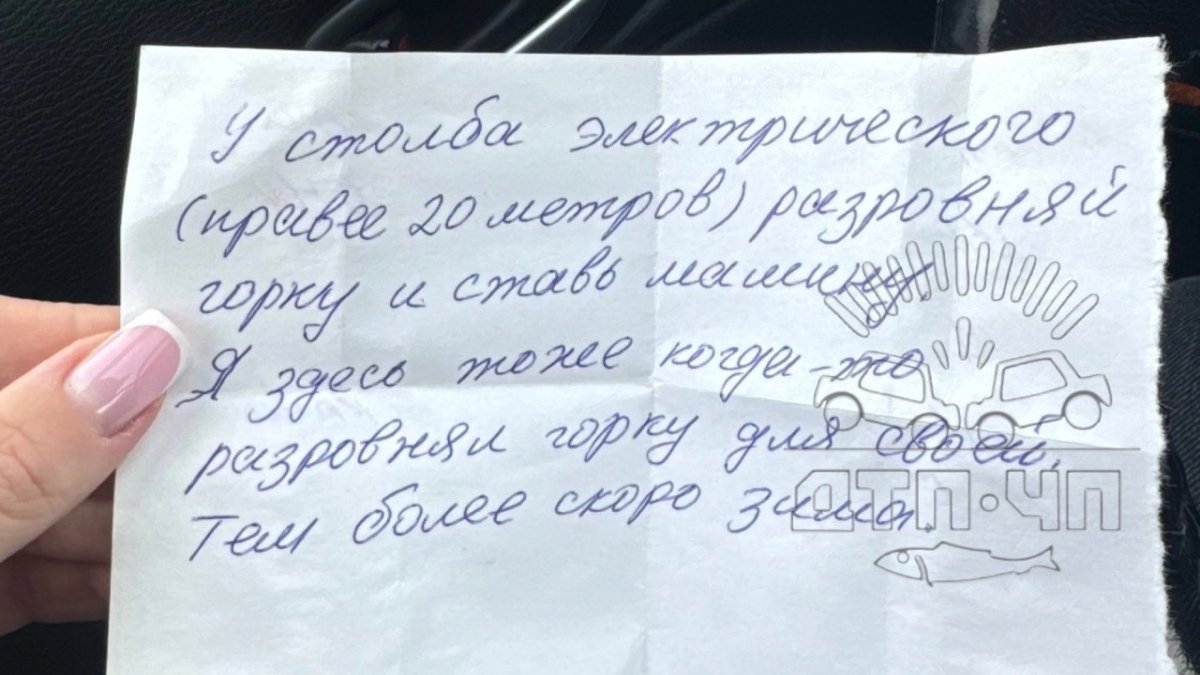 У столба электрического
(правее 20 метров) разровняй
горку и ставь машину
Я здесь тоже когда-то
разровнял горку для своей.
Тем более скоро зима.
ДТП•ЧП